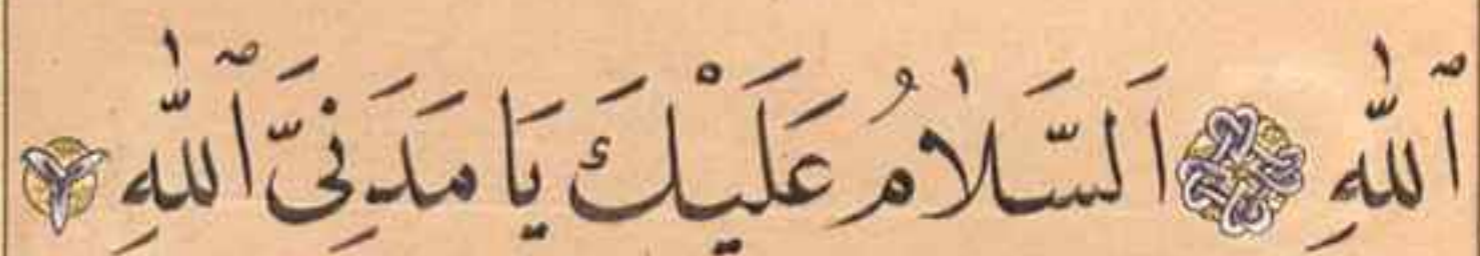 ٱللّٰهِ اَلسَّلَامُ عَلَيْكَ يَا مَدَنِيَّ ٱللّٰهِ